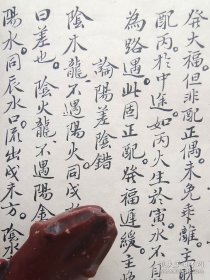 發大福但非配正偶未免乖離主
配丙於中途如丙火生於寅水不
為路遇此固正配發福遲緩主
論陽差陰錯
陰木龍不遇陽火同戌
曰差也陰火龍不遇陽金
陽水同辰水口流出戌未方陰水